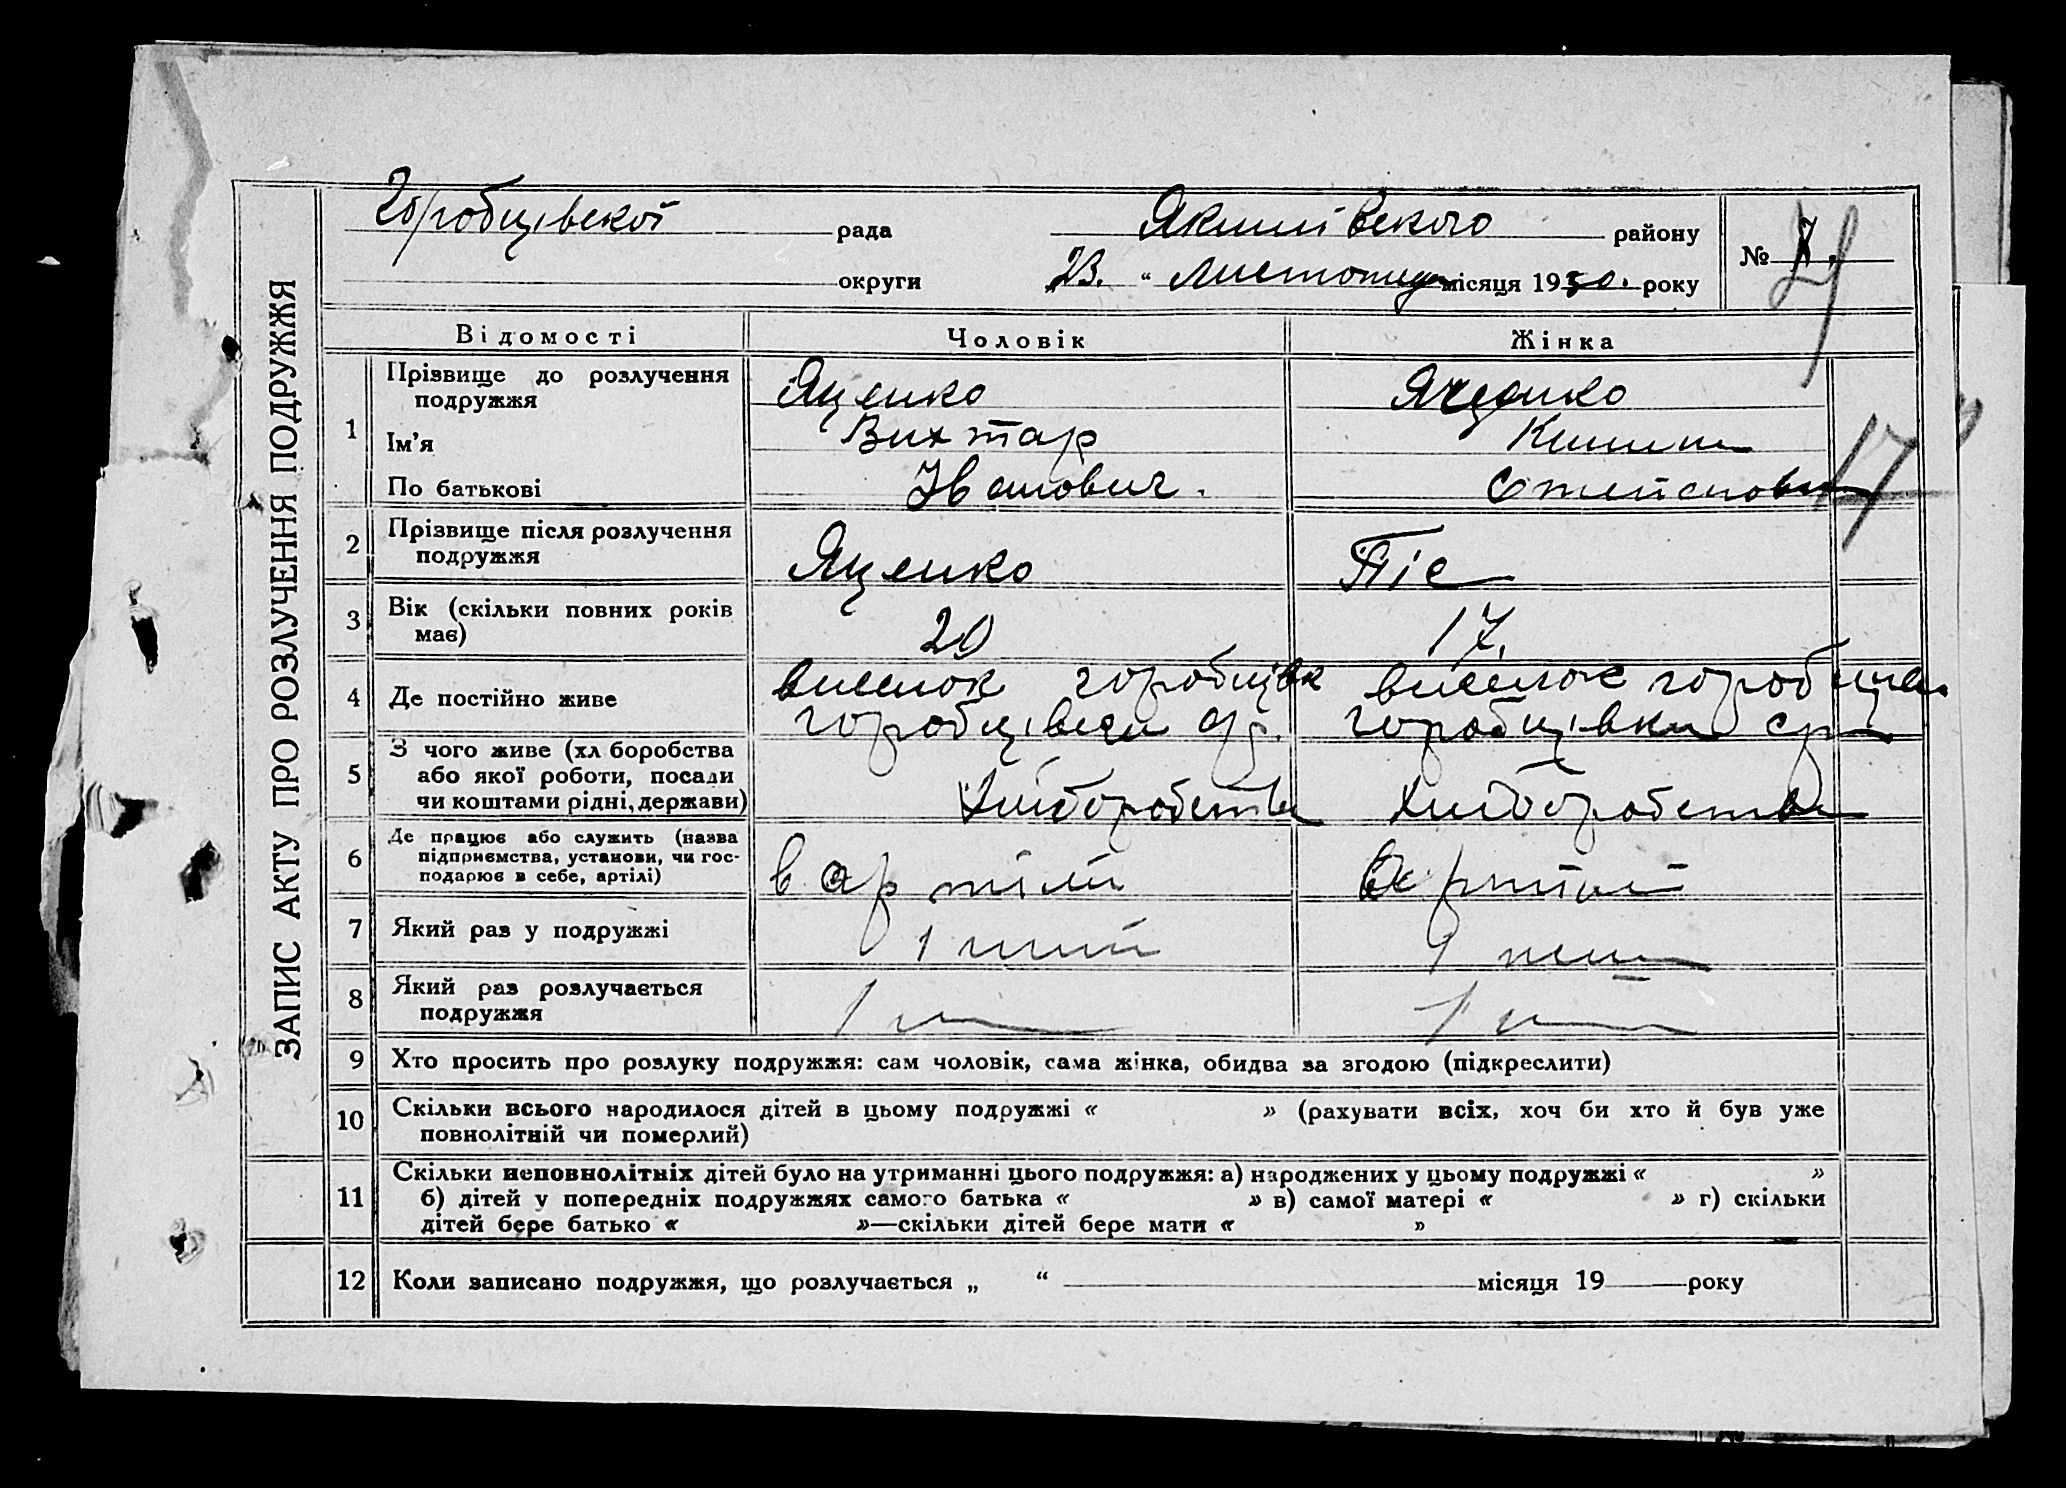 ЗАПИС АКТУ ПРО РОЗЛУЧЕННЯ ПОДРУЖЖЯ
Горобцівської рада Якимівського району
округи „23.“ листопада місяця 1930. року
№ 7.
Відомості Чоловік Жінка
1 Прізвище до розлучення подружжя Яценко Яценко
Ім’я Вихтар
По батькові Іванович.
17
2 Прізвище після розлучення подружжя Яценко Піс
3 Вік (скільки повних років має) 20 17.
4 Де постійно живе виселок горобцівк виселок
горобцівки
5 З чого живе (хлʼборобства або якої роботи, посади чи коштами рідні, держави) Хліборобства Хліборобства
6 Де працює або служить (назва підприємства, установи, чи господарює в себе, артілі) в артілі в артілі
7 Який раз у подружжі 1
8 Який раз розлучається подружжя 1 1
9 Хто просить про розлуку подружжя: сам чоловік, сама жінка, обидва за згодою (підкреслити)
10 Скільки всього народилося дітей в цьому подружжі « » (рахувати всіх, хоч би хто й був уже
повнолітній чи померлий)
11 Скільки неповнолітніх дітей було на утриманні цього подружжя: а) народжених у цьому подружжі « »
б) дітей у попередніх подружжях самого батька « » в) самої матері « » г) скільки
дітей бере батько « »—скільки дітей бере мати « »
12 Коли записано подружжя, що розлучається „ “ місяця 19 року